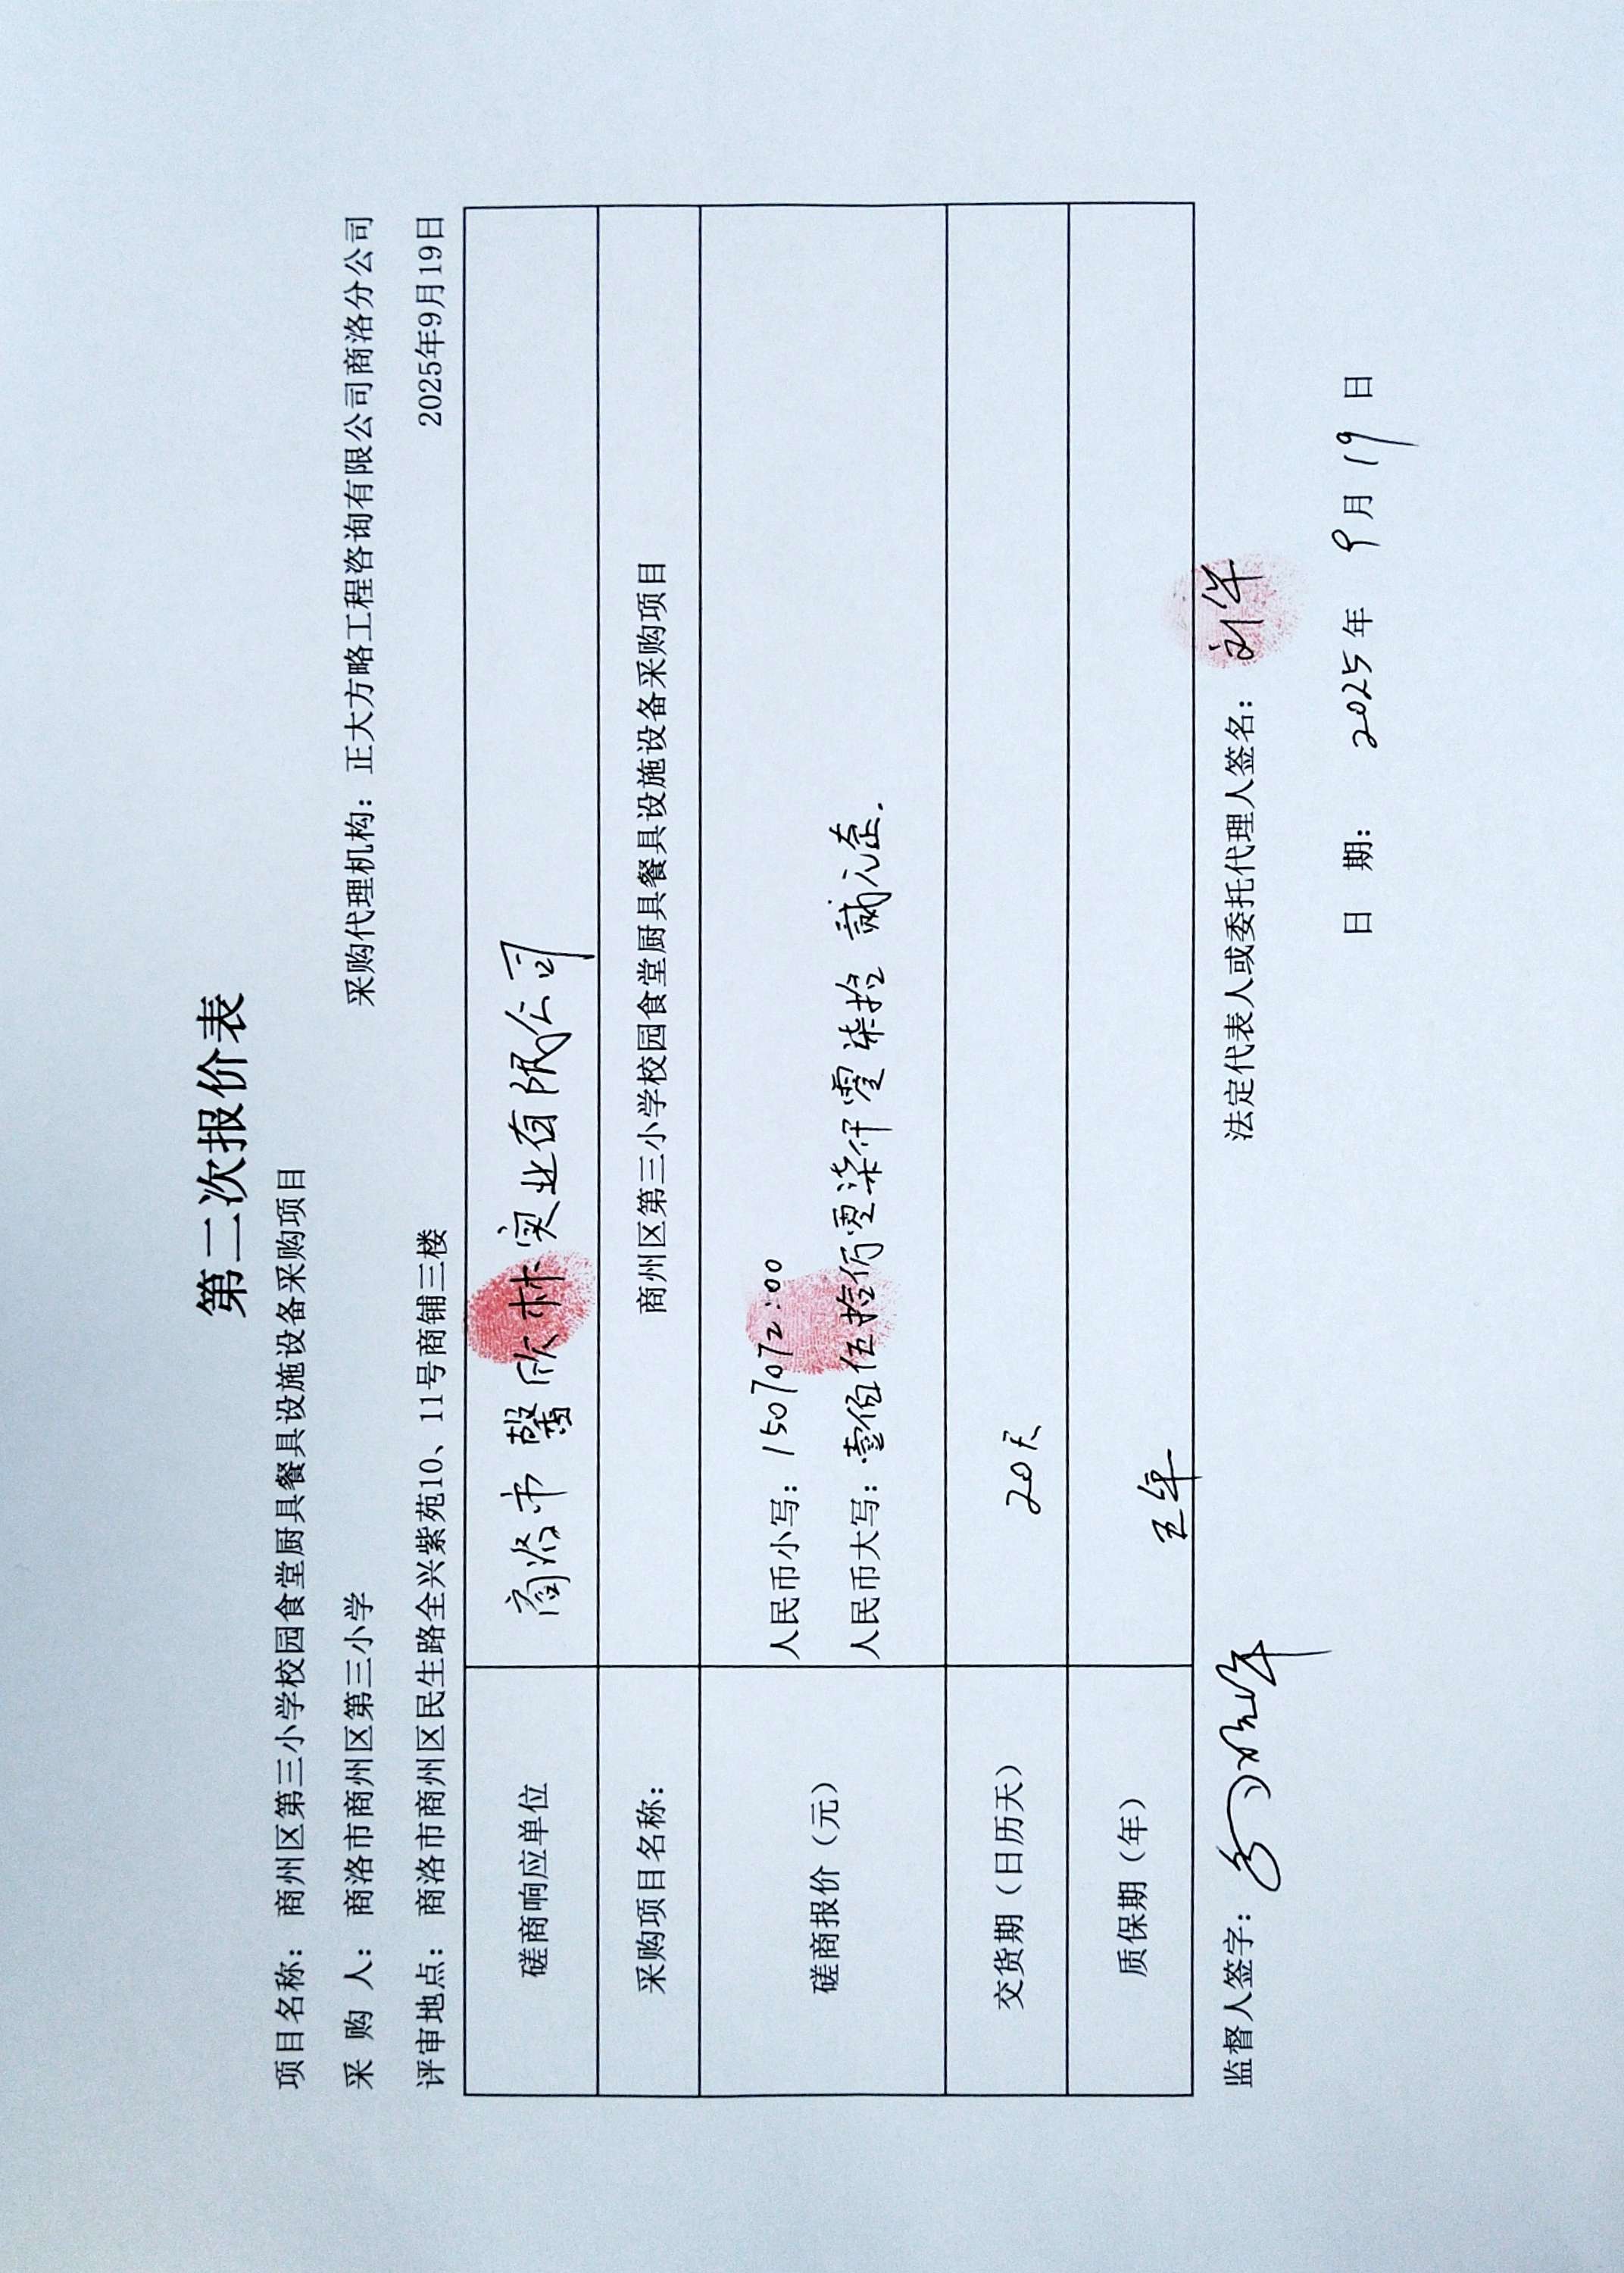 第二次报价表
项目名称： 商州区第三小学校园食堂厨具餐具设施设备采购项目
采 购 人： 商洛市商州区第三小学 采购代理机构： 正大方略工程咨询有限公司商洛分公司
评审地点： 商洛市商州区民生路全兴紫苑10、11号商铺三楼 2025年9月19日
磋商响应单位 商洛市馨欣林实业有限公司
采购项目名称： 商州区第三小学校园食堂厨具餐具设施设备采购项目
磋商报价（元）
人民币小写：1507072:00
人民币大写：壹佰伍拾万零柒仟零柒拾贰元整.
交货期（日历天） 20天
质保期（年） 五年
监督人签字： 法定代表人或委托代理人签名：
日 期： 2025年 9月 19 日